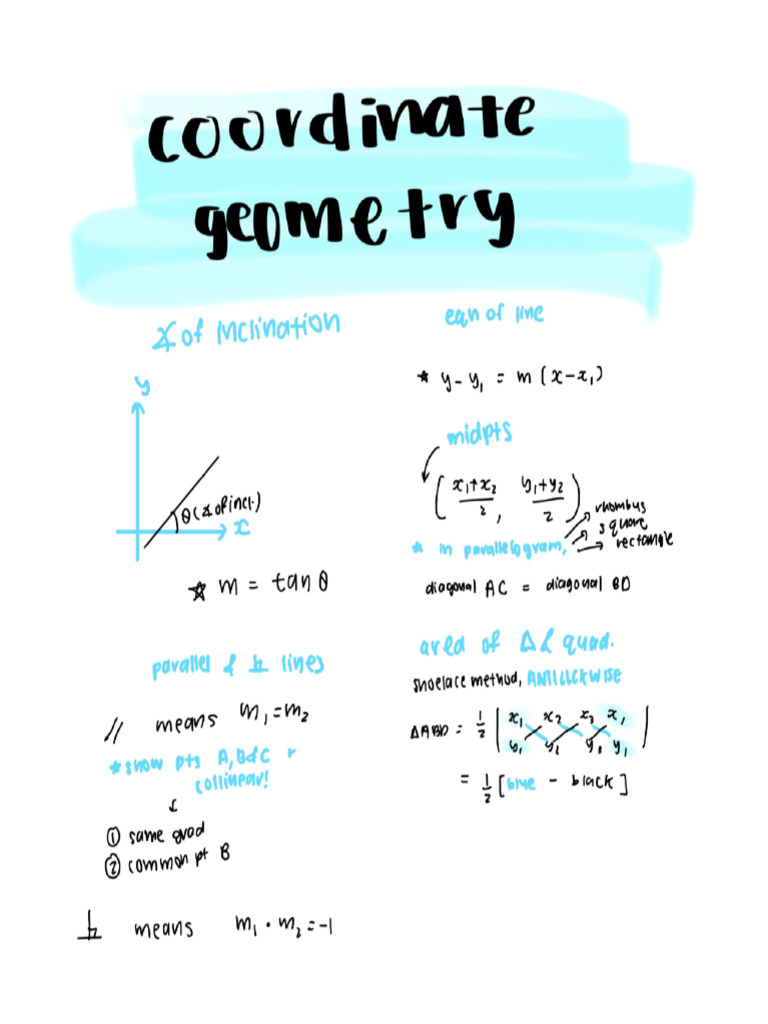 coordinate
geometry
∡ of inclination
y
θ (∡ of incl.)
x
☆ m = tan θ
parallel & ⊥ lines
// means m₁ = m₂
* show pts A, B & C r
collinear!
① same grad
② common pt B
⊥ means m₁ · m₂ = -1
eqn of line
* y - y₁ = m (x - x₁)
midpts
(x₁+x₂/2, y₁+y₂/2)
rhombus
square
* in parallelogram, rectangle
diagonal AC = diagonal BD
area of Δ & quad.
shoelace method, ANTICLCKWISE
ΔABD = 1/2 | x₁ x₂ x₃ x₁
y₁ y₂ y₃ y₁ |
= 1/2 [blue - black]